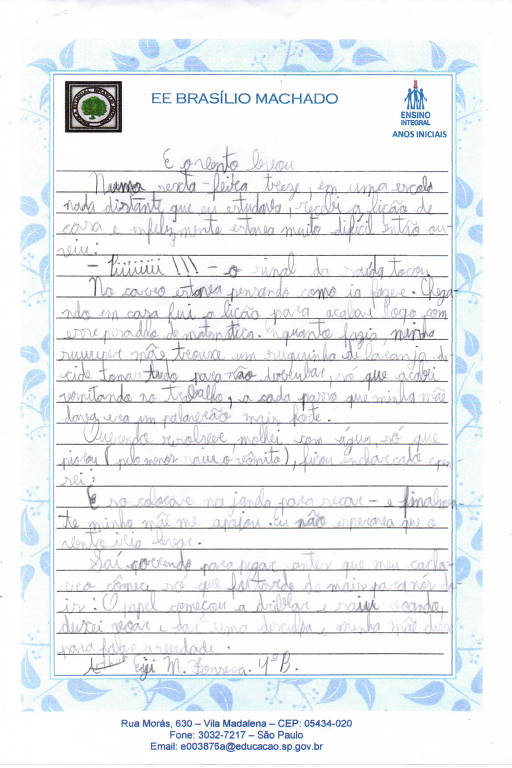 EE BRASÍLIO MACHADO
ENSINO
INTEGRAL
ANOS INICIAIS
E o vento levou
Numa sexta-feira treze, em uma escola
nada distante que eu estudava, recebi a lição de
casa e infelizmente estava muito difícil então ou-
- Piiiiiii!!! - o sinal da saída tocou.
No carro estava pensando como ia fazer. Chega-
ndo em casa fui a lição para acabar logo com
esse pesadelo de matemática. Enquanto fazia, minha
mãe trouxe um suquinho de laranja, de-
cide tomar tudo para não derrubar, só que acabei
vomitando no trabalho, a cada passo que minha mãe
dava era um mais forte.
Querendo resolver, molhei com água, só que
piorou (pelo menos saiu o vômito), ficou encharcado e pen-
sei:
É so colocar na para secar - e finalmen-
te minha mãe me apoiou. Eu não esperava que o
vento iria levar.
Saí correndo para pegar antes que meu cacho-
rro só que foi tarde de mais para nós do-
is: O papel começou a driblar e saiu voando,
deixei e dar uma desculpa e minha mãe disse
para falar a verdade.
M. Fonseca. 4º B.
Rua Morás, 630 – Vila Madalena – CEP: 05434-020
Fone: 3032-7217 – São Paulo
Email: e003876a@educacao.sp.gov.br